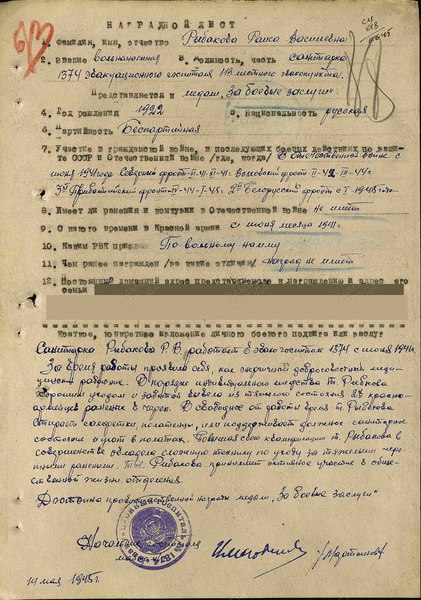 НАГРАДНОЙ ЛИСТ
1. Фамилия, имя, отчество Рыбакова Раиса Васильевна
2. Звание вольнонаемная 3. Должность, часть санитарка
1374 эвакуационного госпиталя
Представляется к медали "За боевые заслуги"
4. Год рождения 1922 5. Национальность русская
6. Партийность Беспартийная
7. Участие в гражданской войне, в последующих боевых действиях по защите СССР и Отечественной войне /где, когда/ В отечественной войне с
июня 1941 года Северный фронт Волховский фронт
3й Прибалтийский фронт 2й Белорусский фронт с
8. Имеет ли ранения и контузии в Отечественной войне не имеет
9. С какого времени в Красной армии с июня месяца 1941 г.
10. Каким РВК призван По вольному найму
11. Чем ранее награжден /за какие отличия/ наград не имеет
12. Постоянный домашний адрес представляемого к награждению и адрес его
семьи
Краткое, конкретное изложение личного боевого подвига или заслуг
Санитарка Рыбакова Р.В. работает в эвакогоспитале 1374 с июня 1941 г.
За время работы проявила себя, как энергичный добросовестный меди-
цинский работник. В порядке индивидуального т. Рыбакова
хорошим уходом и заботой вывела из тяжелого состояния 28 красно-
армейцев раненых в В свободное от работы время т. Рыбакова
стирает салфетки, или поддерживает должное санитарное
состояние и уют в палатах. Повышая свою квалификацию т. Рыбакова в
совершенстве овладела сложную технику по уходу за тяжелыми череп-
ными ранеными. Тов. Рыбакова принимает активное участие в общест-
венной жизни отделения.
Достойна правительственной награды медали "За боевые заслуги"
Начальник госпиталя
14 мая 1945 г.